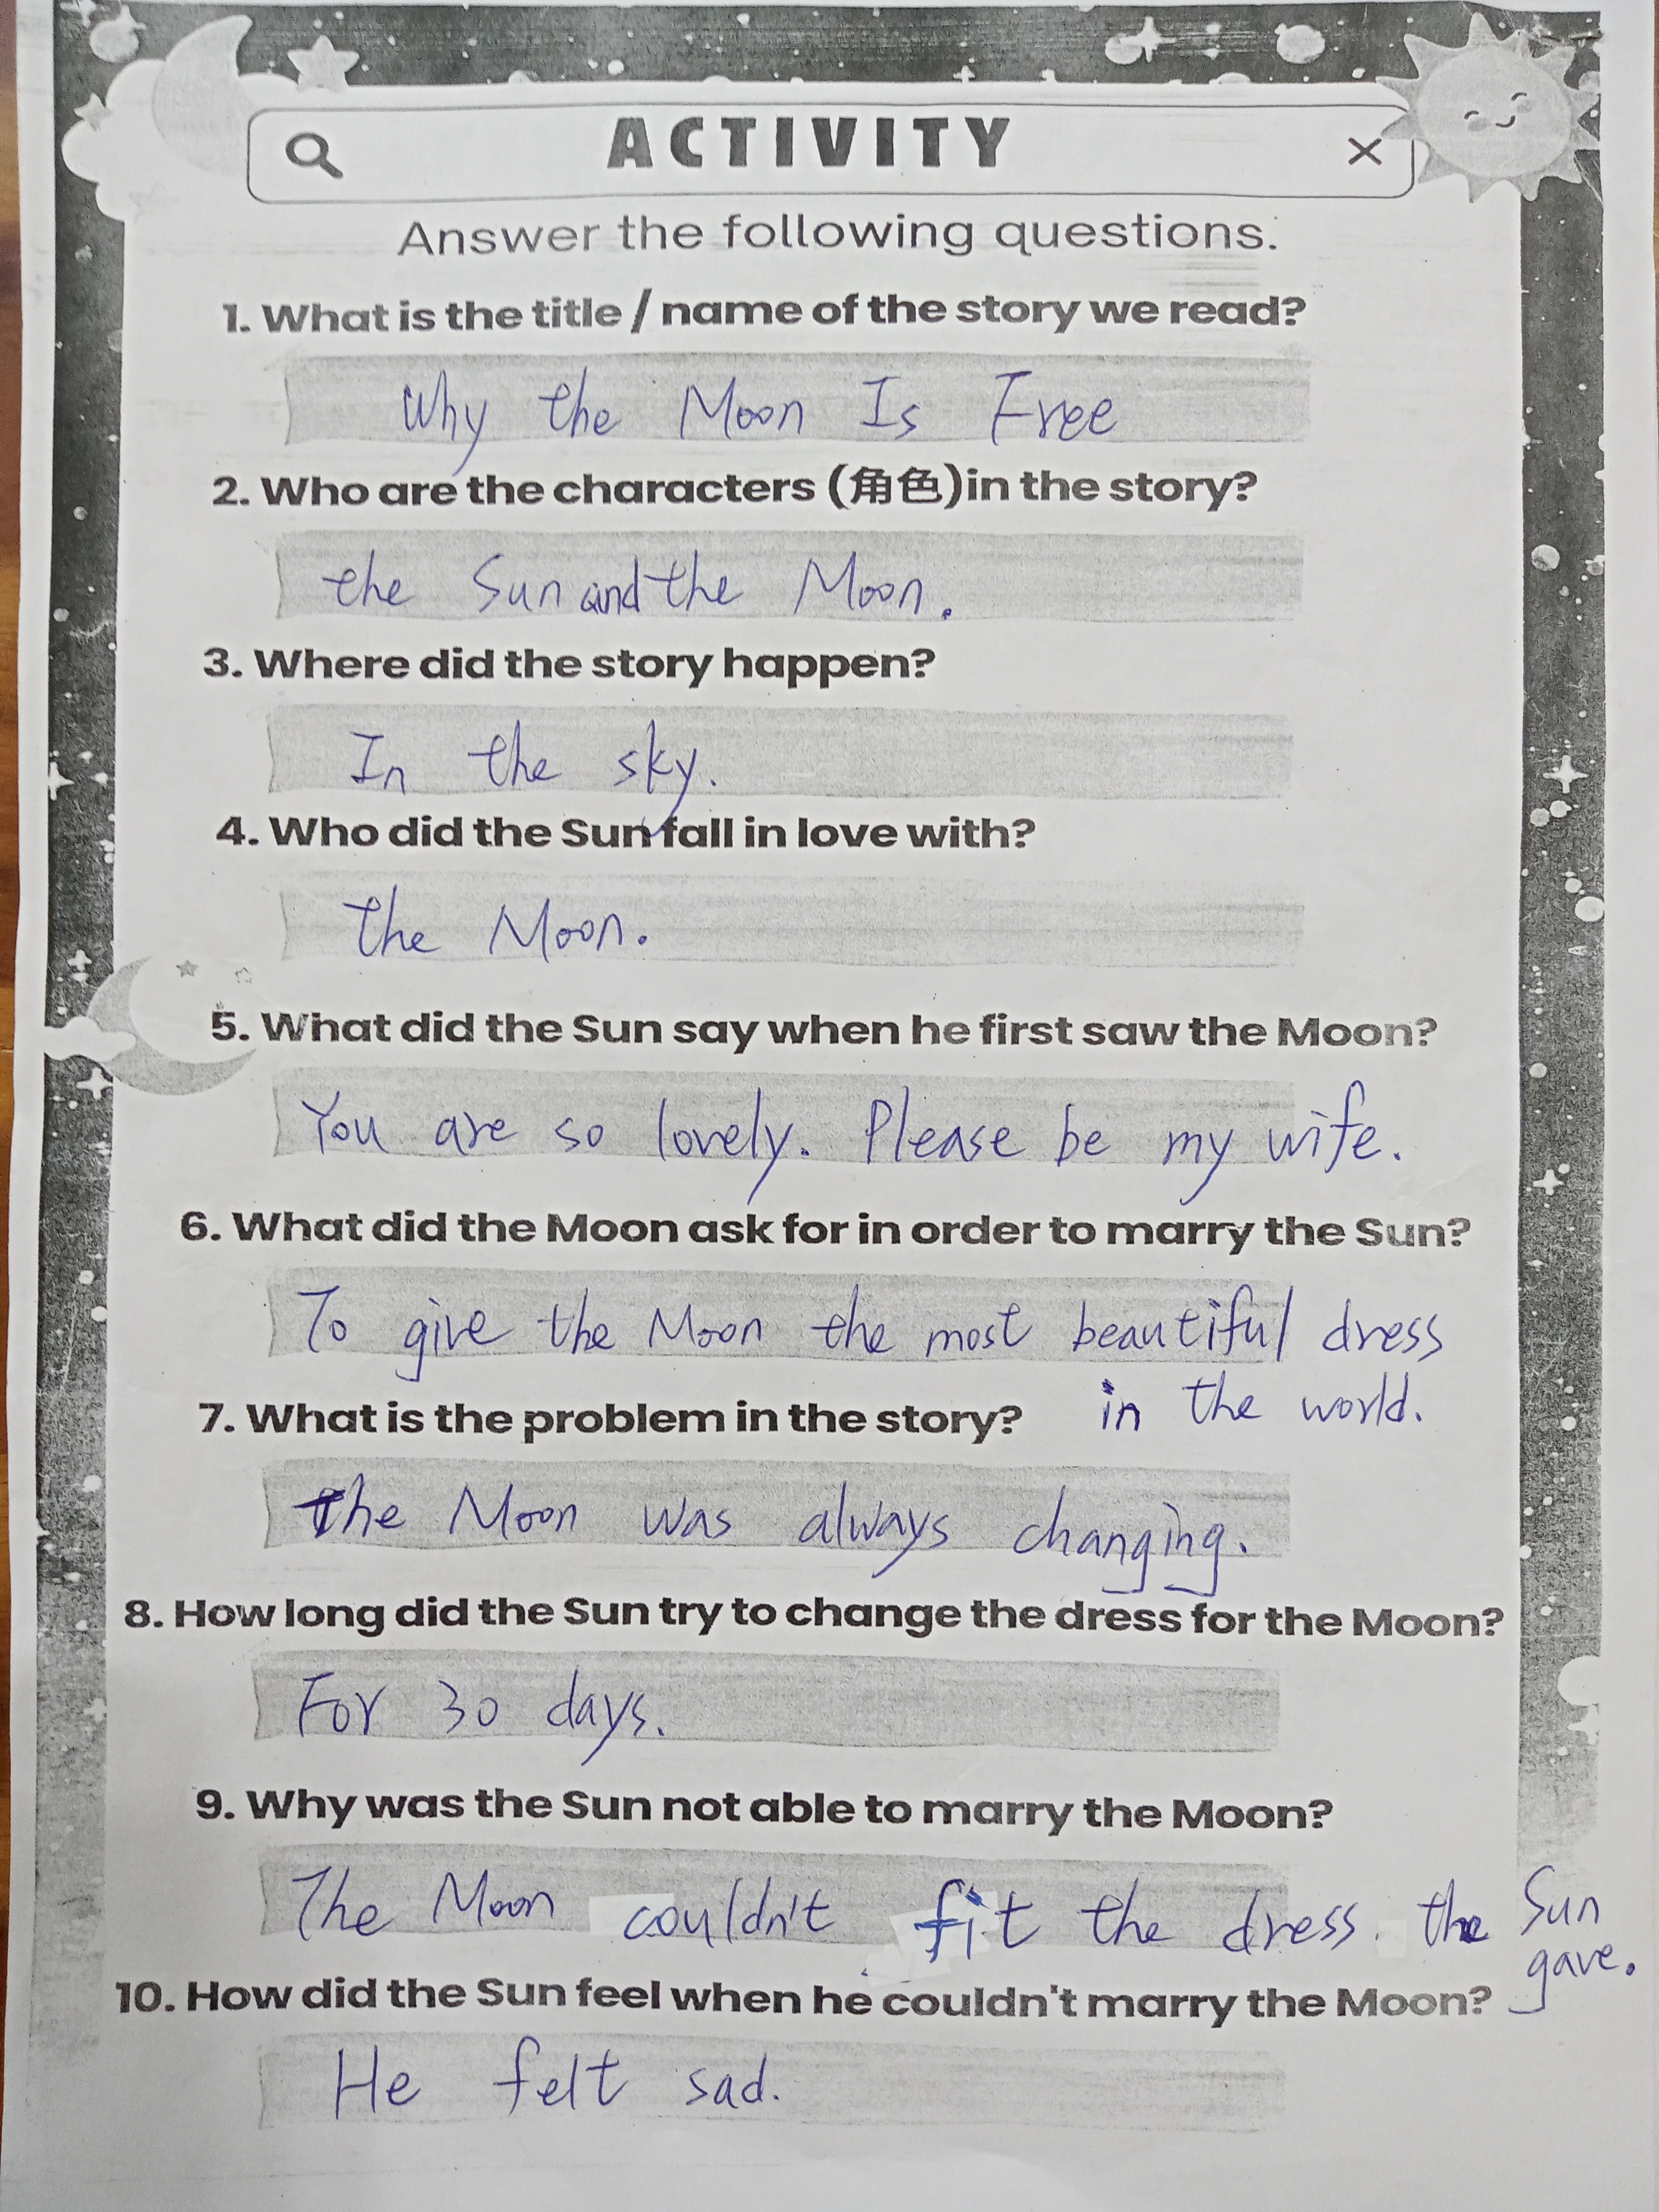 ACTIVITY
Answer the following questions.
1. What is the title / name of the story we read?
Why the Moon Is Free
2. Who are the characters (角色)in the story?
the Sun and the Moon.
3. Where did the story happen?
In the sky.
4. Who did the Sun fall in love with?
the Moon.
5. What did the Sun say when he first saw the Moon?
You are so lovely. Please be my wife.
6. What did the Moon ask for in order to marry the Sun?
To give the Moon the most beautiful dress
in the world.
7. What is the problem in the story?
the Moon was always changing.
8. How long did the Sun try to change the dress for the Moon?
For 30 days.
9. Why was the Sun not able to marry the Moon?
The Moon couldn't fit the dress. the Sun
gave.
10. How did the Sun feel when he couldn't marry the Moon?
He felt sad.